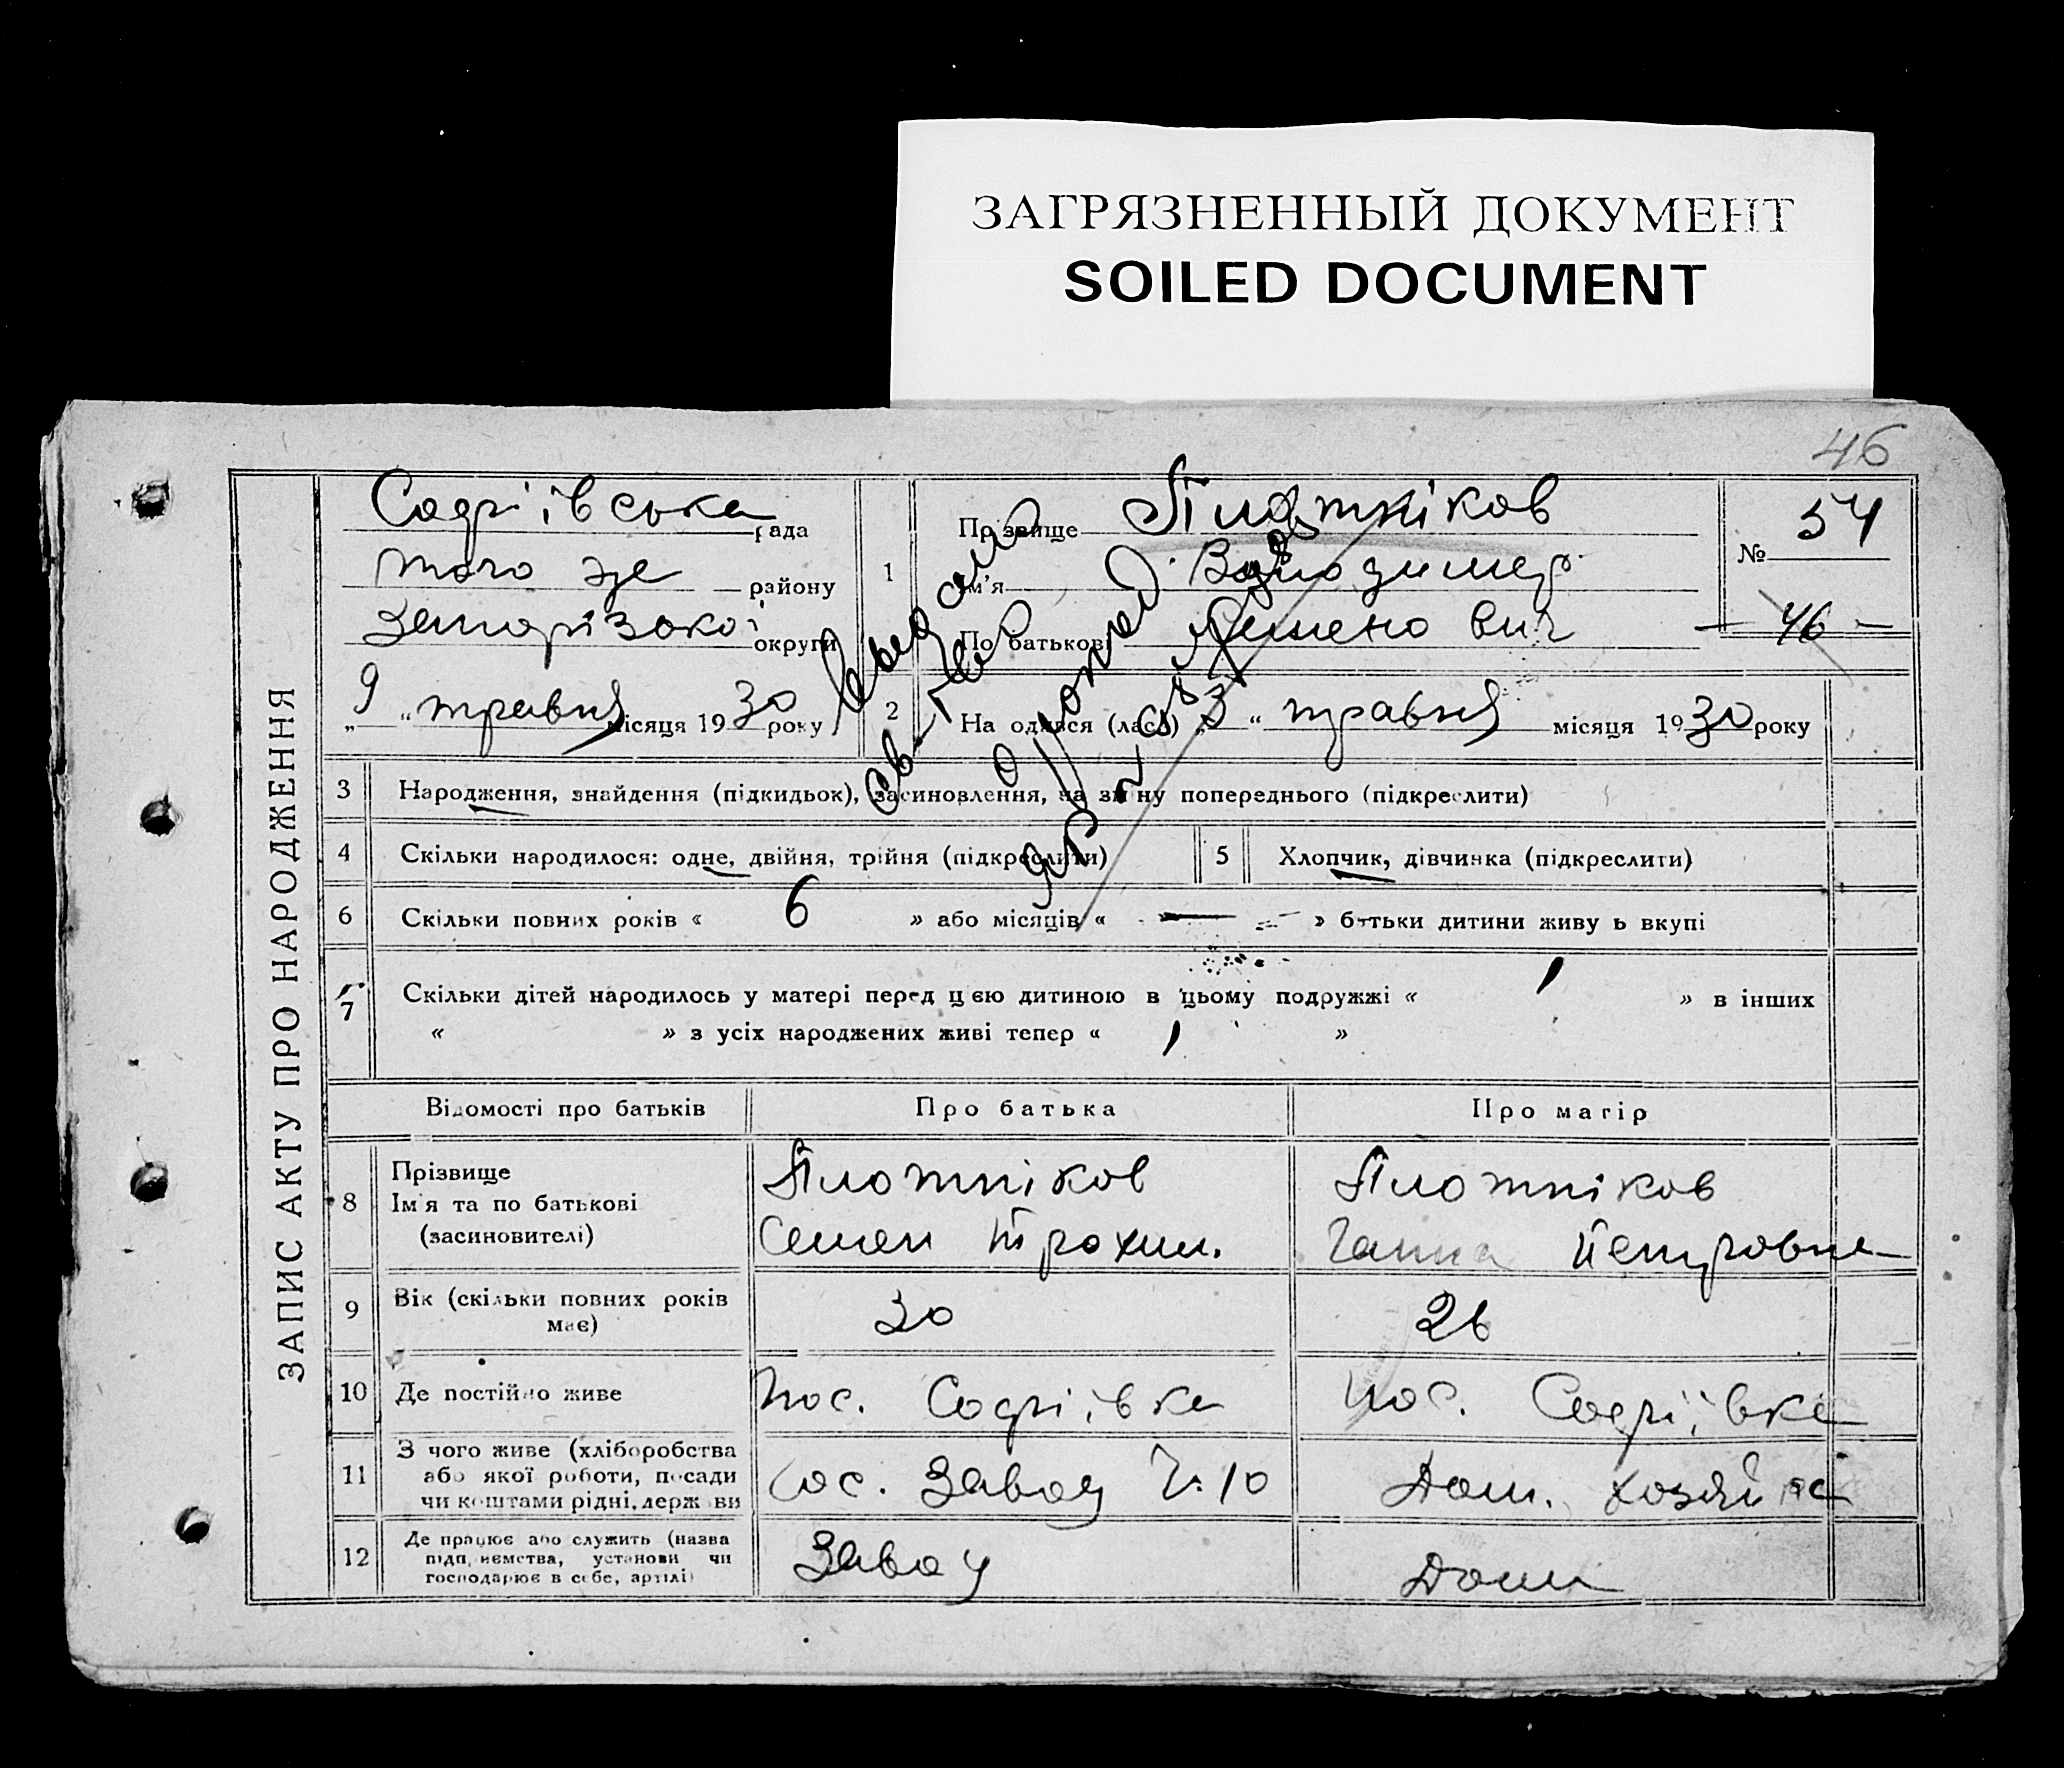 ЗАГРЯЗНЕННЫЙ ДОКУМЕНТ
SOILED DOCUMENT
46
ЗАПИС АКТУ ПРО НАРОДЖЕННЯ
Софіївська рада
того же району
Запорізької округи
„9“ травня місяця 1930 року
1
Прізвище Плотніков
Ім'я Володимер
По батькові Семенович
№ 54
— 46 —
2 На одився (лась) „3“ травня місяця 1930 року
3 Народження, знайдення (підкидьок), засиновлення, на зміну попереднього (підкреслити)
4 Скільки народилося: одне, двійня, трійня (підкреслити)
5 Хлопчик, дівчинка (підкреслити)
6 Скільки повних років « 6 » або місяців « — » батьки дитини живуть вкупі
7 Скільки дітей народилось у матері перед цією дитиною в цьому подружжі « 1 » в інших
« » з усіх народжених живі тепер « 1 »
Відомості про батьків Про батька Про матір
8 Прізвище
Ім'я та по батькові
(засиновителі)
Плотніков
Семен Трохим.
Плотніков
Ганна Петровна
9 Вік (скільки повних років має) 30 26
10 Де постійно живе пос. Софіївка пос. Софіївка
11 З чого живе (хліборобства
або якої роботи, посади
чи коштами рідні, держави
Гос. Завод Ч. 10
Дом. хозяйка
12 Де працює або служить (назва
підприємства, установи чи
господарює в себе, артілі)
Завод
Дома